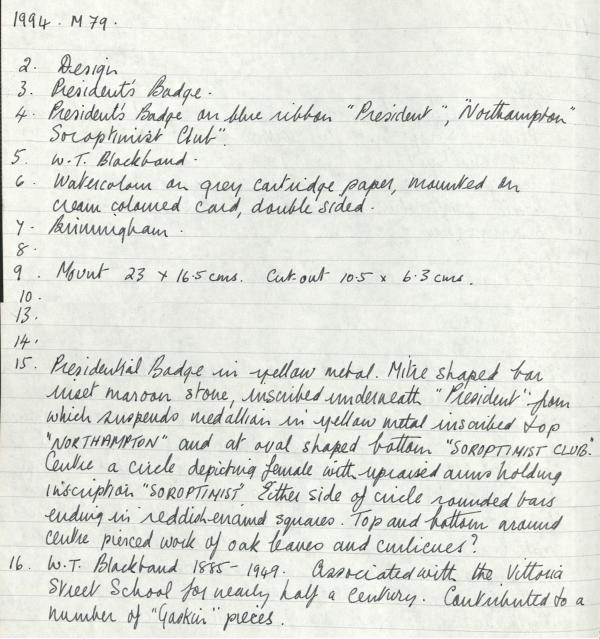 1994. M79.
2. Design
3. President's Badge.
4. President's Badge on blue ribbon "President", "Northampton"
Soroptimist Club".
5. W.T. Blackband.
6. Watercolour on grey cartridge paper, mounted on
cream coloured card, double sided.
7. Birmingham.
8.
9. Mount 23 x 16.5 cms. Cut-out 10.5 x 6.3 cms.
10.
13.
14.
15. Presidential Badge in yellow metal. Mitre shaped bar
inset maroon stone, inscribed underneath "President" from
which suspends medallian in yellow metal inscribed top
"NORTHAMPTON" and at oval shaped bottom "SOROPTIMIST CLUB".
Centre a circle depicting female with upraised arms holding
inscription "SOROPTIMIST'. Either side of circle rounded bars
ending in reddish enamd squares. Top and bottom around
centre pierced work of oak leaves and curlicues?
16. W.T. Blackband 1885-1949. Associated with the Vittoria
Street School for nearly half a century. Contributed to a
number of "Gaskin" pieces.